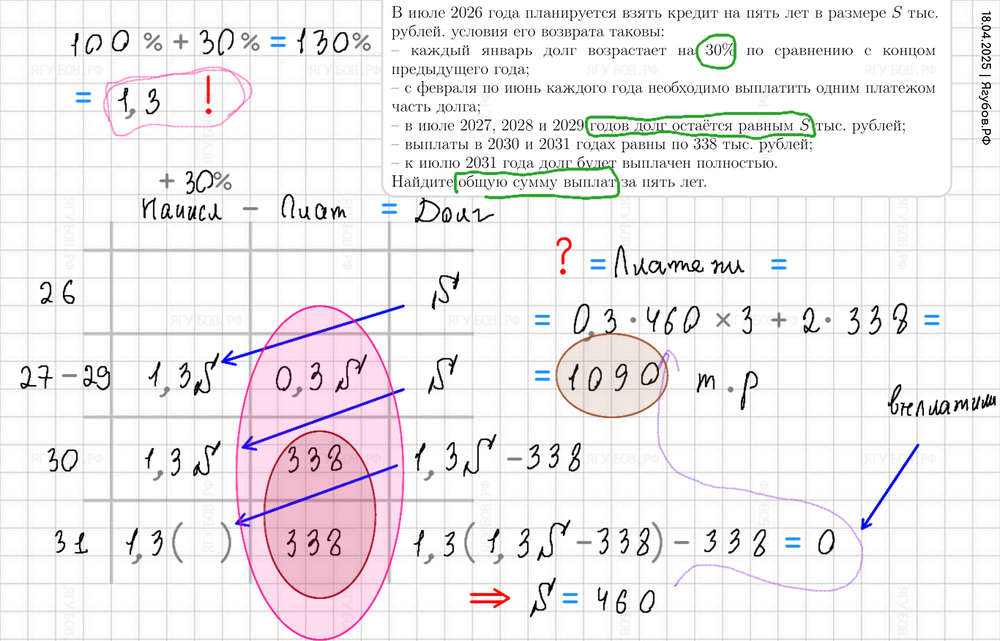 В июле 2026 года планируется взять кредит на пять лет в размере S тыс.
рублей. условия его возврата таковы:
– каждый январь долг возрастает на 30% по сравнению с концом
предыдущего года;
– с февраля по июнь каждого года необходимо выплатить одним платежом
часть долга;
– в июле 2027, 2028 и 2029 годов долг остаётся равным S тыс. рублей;
– выплаты в 2030 и 2031 годах равны по 338 тыс. рублей;
– к июлю 2031 года долг будет выплачен полностью.
Найдите общую сумму выплат за пять лет.
18.04.2025 | Ягубов.РФ
100 % + 30% = 130%
= 1,3 !
+ 30%
Начисл – Плат = Долг
26 S
27 – 29 1,3S 0,3 S S
30 1,3 S 338 1,3S – 338
31 1,3 ( ) 338 1,3 ( 1,3S – 338 ) – 338 = 0
⇒ S = 460
? = Платежи =
= 0,3 · 460 × 3 + 2 · 338 =
= 1090 т.р
выплатили